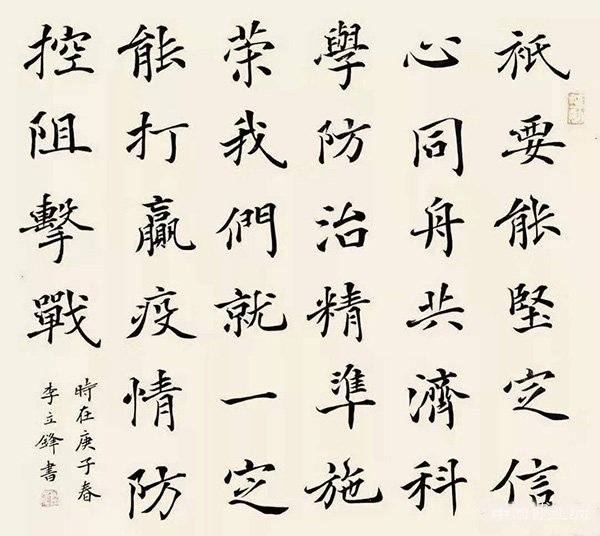 祇要能堅定信
心同舟共濟科
學防治精準施
策我們就一定
能打贏疫情防
控阻擊戰
時在庚子春
李立鋒書